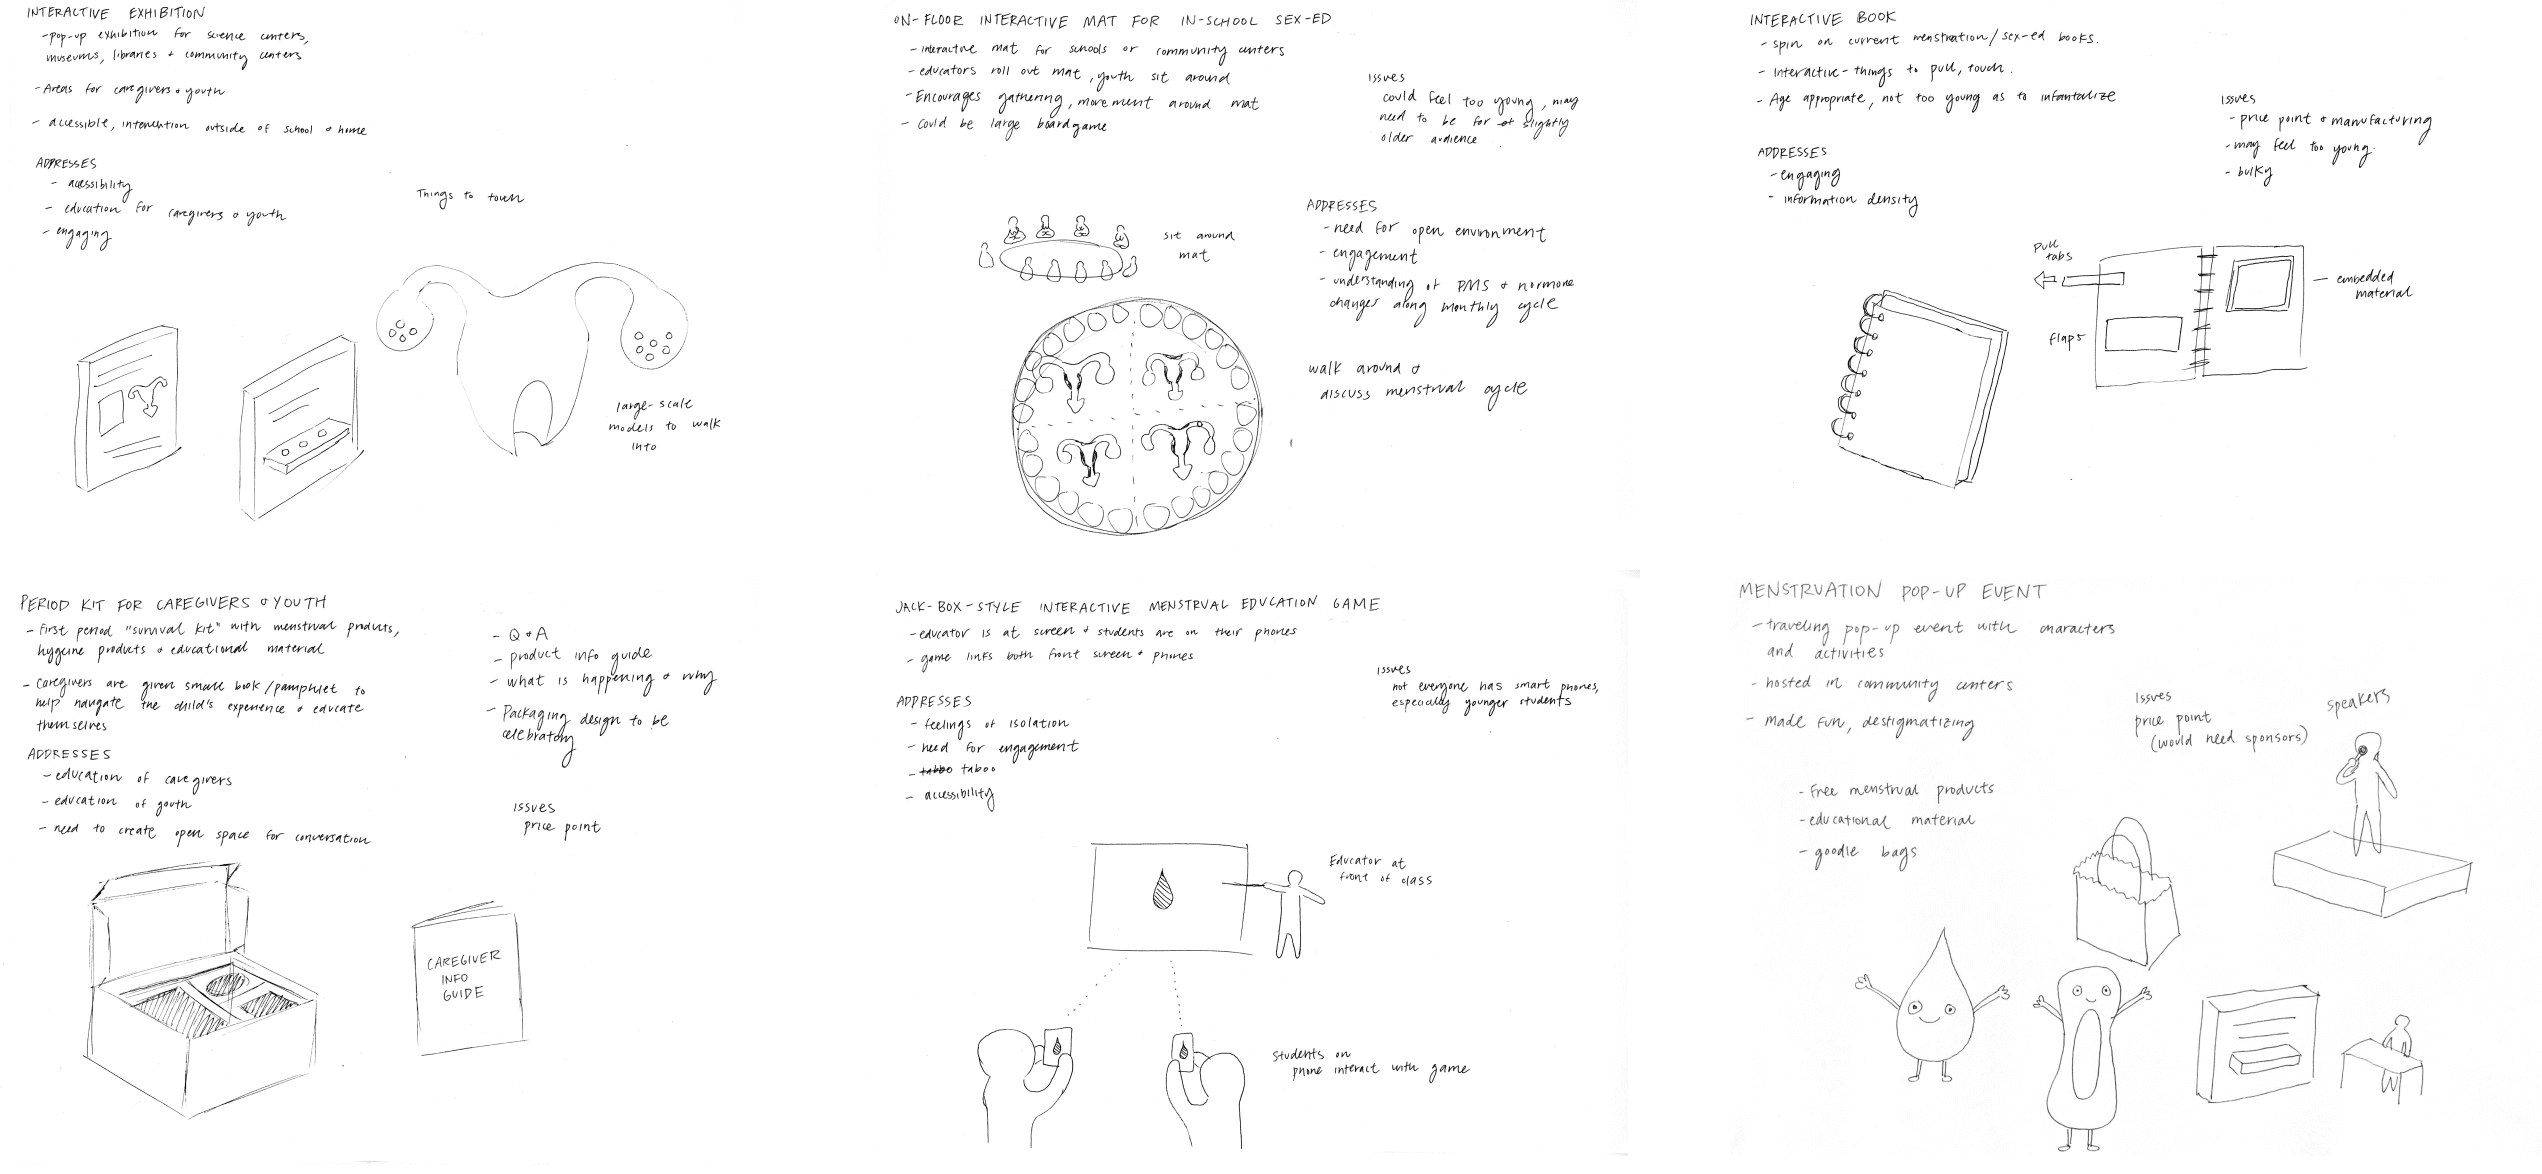 INTERACTIVE EXHIBITION
- pop-up exhibition for science centers,
museums, libraries + community centers
- Areas for caregivers + youth
- accessible, intervention outside of school + home
ADDRESSES
- acessibility
- education for caregivers + youth
- engaging
Things to touch
large-scale
models to walk
into
ON-FLOOR INTERACTIVE MAT FOR IN-SCHOOL SEX-ED
- interactive mat for schools or community centers
- educators roll out mat, youth sit around
- Encourages gathering, movement around mat
- could be large boardgame
Issues
could feel too young, may
need to be for slightly
older audience
sit around
mat
ADDRESSES
- need for open environment
- engagement
- understanding of PMS + hormone
changes along monthly cycle
walk around +
discuss menstrual cycle
INTERACTIVE BOOK
- spin on current menstration/sex-ed books.
- Interactive - things to pull, touch.
- Age appropriate, not too young as to infantalize
ADDRESSES
- engaging
- information density
Issues
- price point + manufacturing
- may feel too young.
- bulky
pull
tabs
flaps
embedded
material
PERIOD KIT FOR CAREGIVERS + YOUTH
- First period "survival kit" with menstrual products,
hygeine products + educational material
- Caregivers are given small book/pamphlet to
help navigate the child's experience + educate
themselves
ADDRESSES
- education of caregivers
- education of youth
- need to create open space for conversation
- Q + A
- product info guide
- what is happening + why
- Packaging design to be
celebratory
Issues
price point
CAREGIVER
INFO
GUIDE
JACK-BOX-STYLE INTERACTIVE MENSTRUAL EDUCATION GAME
- educator is at screen + students are on their phones
- game links both front screen + phones
ADDRESSES
- feelings of isolation
- need for engagement
- tabbo taboo
- accessibility
Issues
not everyone has smart phones,
especially younger students
Educator at
front of class
Students on
phone interact with game
MENSTRUATION POP-UP EVENT
- traveling pop-up event with characters
and activities
- hosted in community centers
- made fun, destigmatizing
- Free menstrual products
- educational material
- goodie bags
Issues
price point
(would need sponsors)
speakers